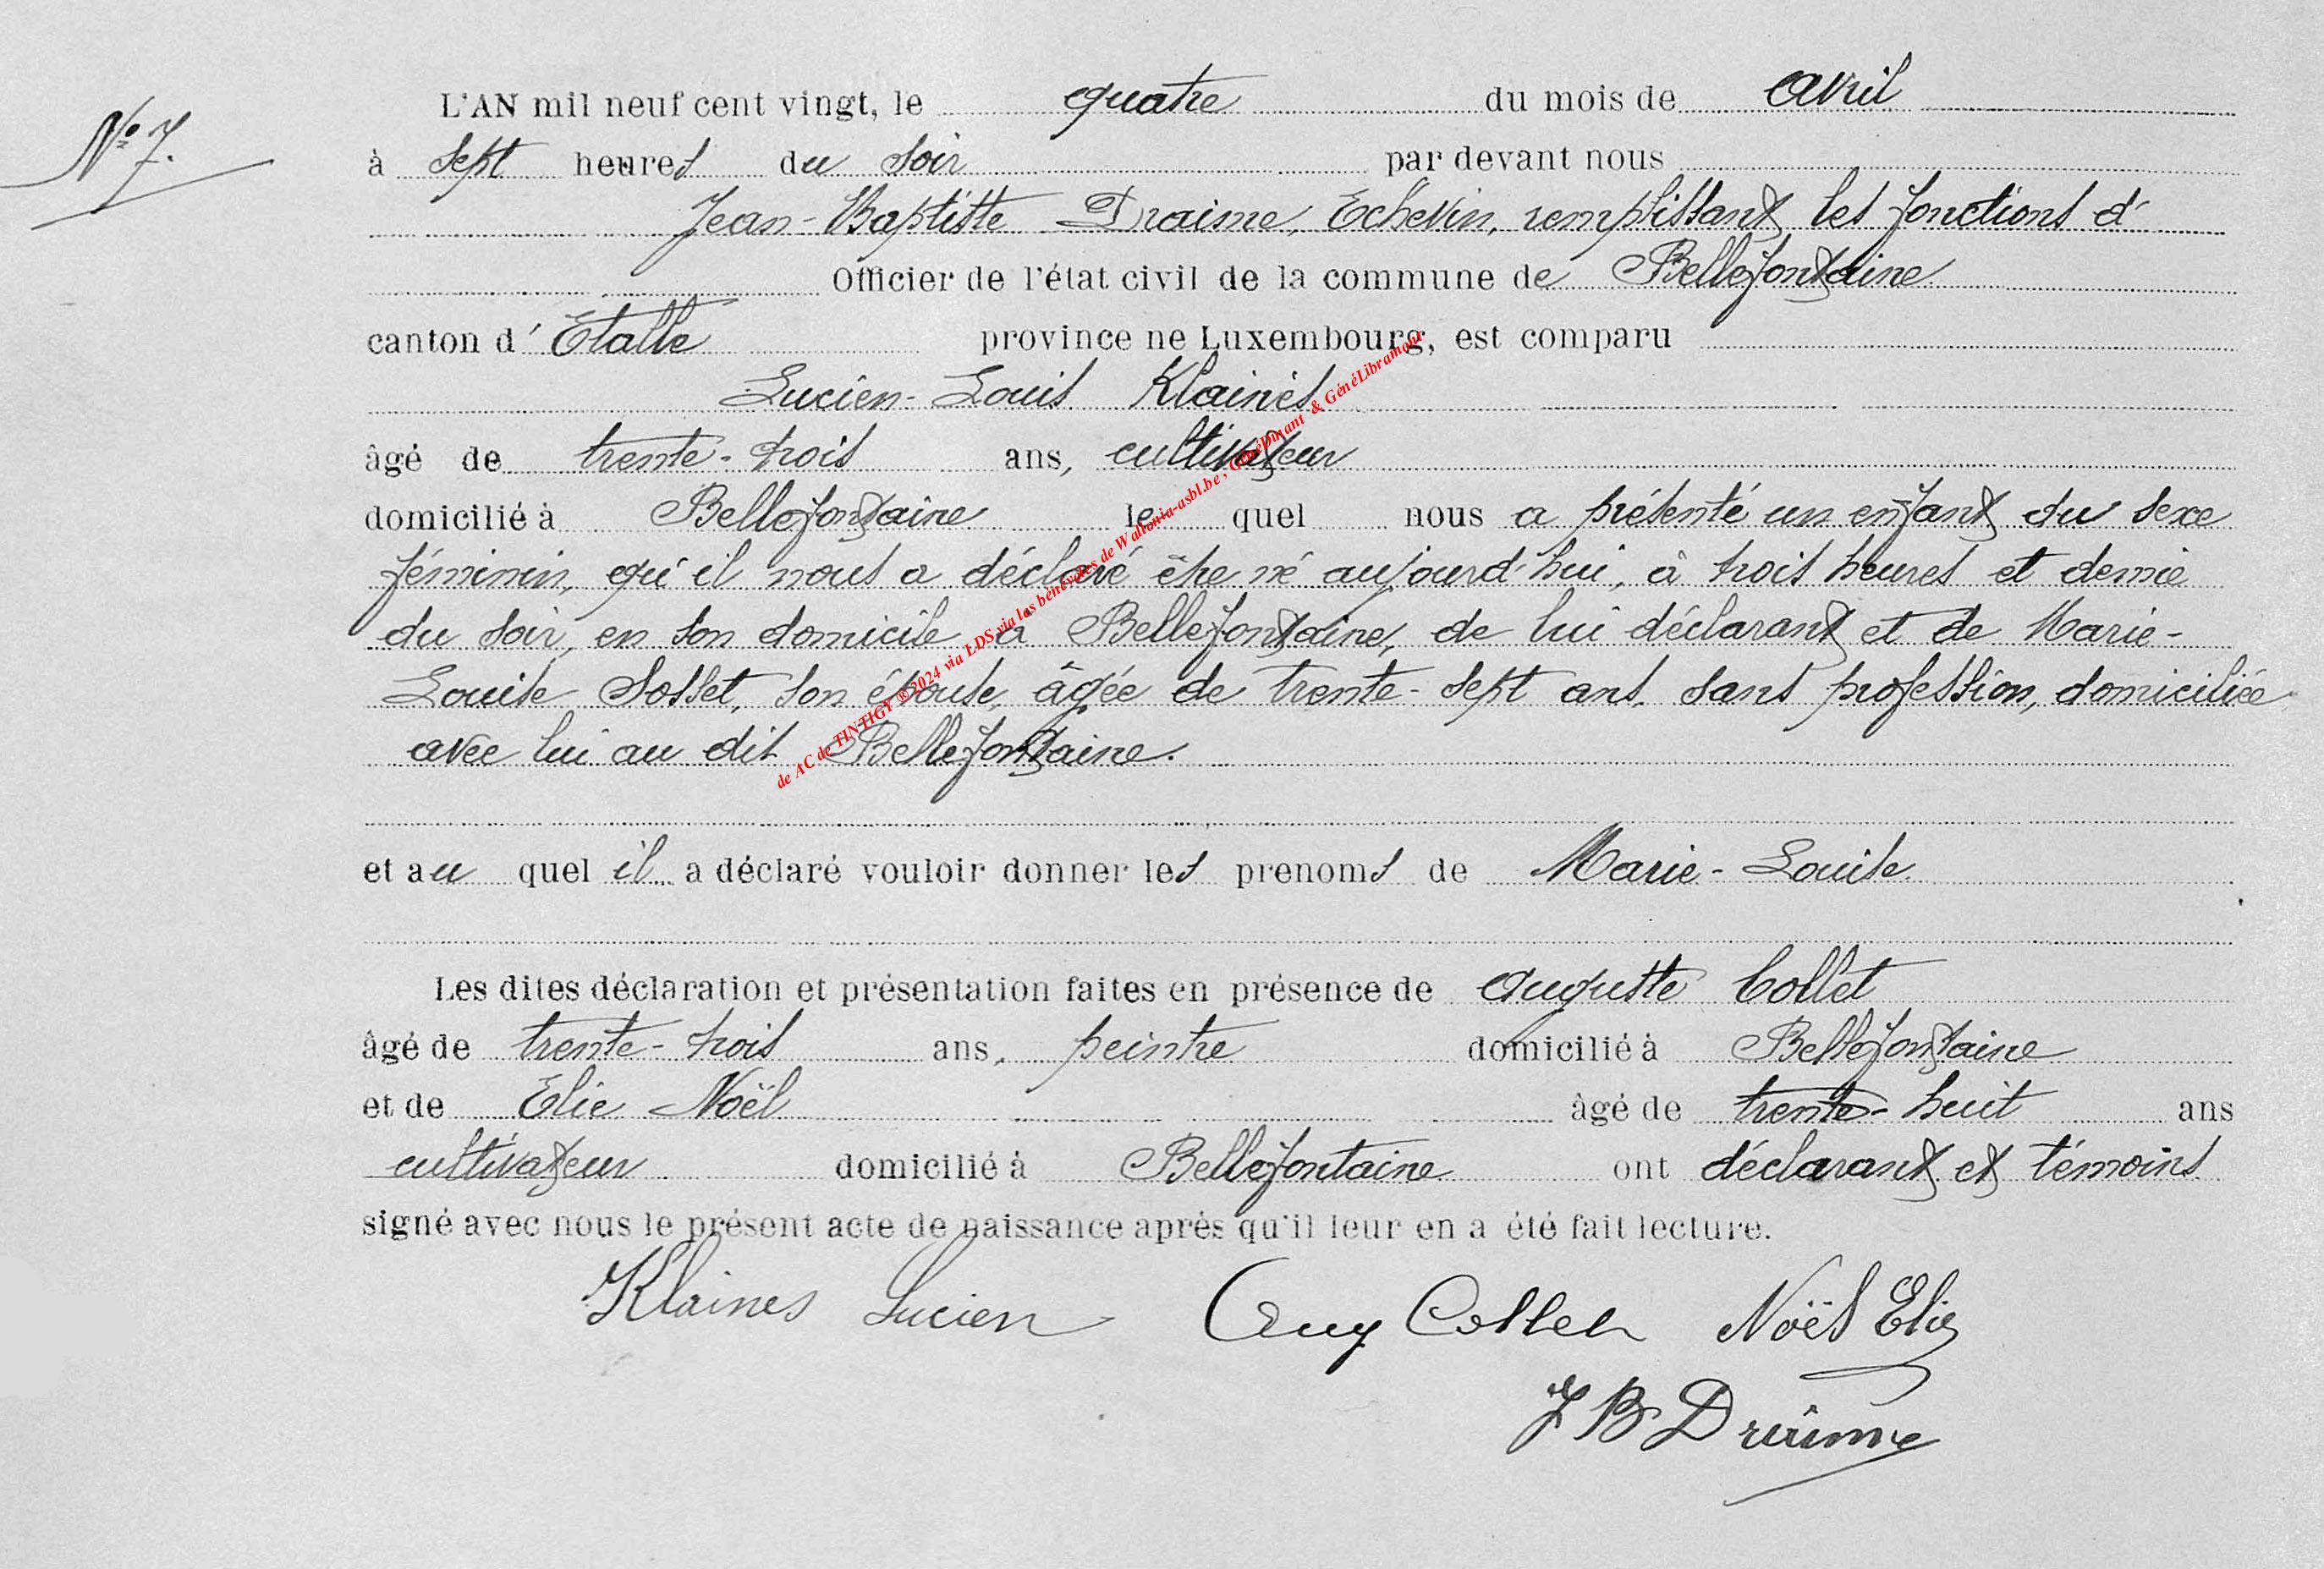 N° 7.
L'AN mil neuf cent vingt, le quatre du mois de avril
à sept heures du soir par devant nous
Jean-Baptiste Draime, Echevin, remplissant les fonctions d'
Officier de l'état civil de la commune de Bellefontaine
canton d' Etalle province ne Luxembourg, est comparu
Lucien-Louis Klainès
âgé de trente-trois ans, cultivateur
domicilié à Bellefontaine le quel nous a présenté un enfant du sexe
féminin, qu'il nous a déclaré être né aujourd'hui, à trois heures et demie
du soir, en son domicile à Bellefontaine, de lui déclarant et de Marie-
Louise Sosset, son épouse, âgée de trente-sept ans, sans profession, domiciliée
avec lui au dit Bellefontaine.
et au quel il a déclaré vouloir donner les prenoms de Marie-Louise
Les dites déclaration et présentation faites en présence de Auguste Collet
âgé de trente-trois ans, peintre domicilié à Bellefontaine
et de Elie Noël âgé de trente-huit ans
cultivateur domicilié à Bellefontaine ont déclarant et témoins
signé avec nous le présent acte de naissance après qu'il leur en a été fait lecture.
Klaines Lucien Aug Collet Noël Elie
J B Draime
de AC de TINTIGY ®2024 via LDS via les bénévoles de Wallonia-asbl.be , GénéDinant & GénéLibramont